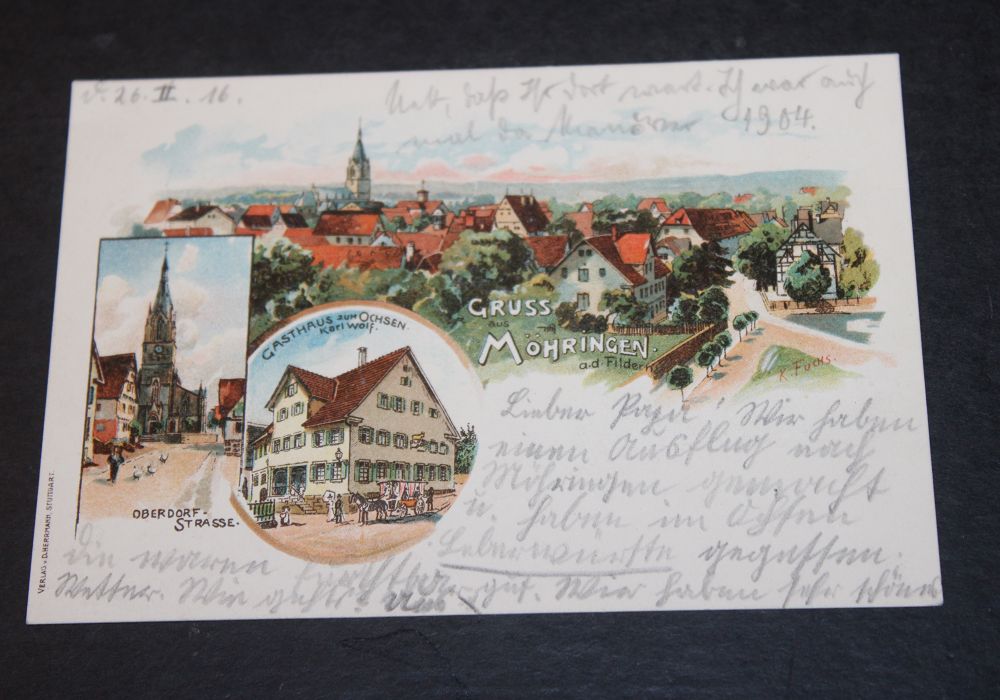 d. 26. II. 16.
Nett, daß Ihr dort wart. Ich war auch
mal da Manöver 1904.
GASTHAUS ZUM OCHSEN.
Karl Wolf.
GRUSS
aus
MÖHRINGEN.
a.d. Fildern
K. Fuchs.
OBERDORF-
STRASSE.
VERLAG v. D. HERRMANN, STUTTGART.
Lieber Papa! Wir haben
einen Ausflug nach
Möhringen gemacht
u. haben im Ochsen
Leberwürste gegessen.
die waren gut. Wir haben sehr schönes
Wetter. Wie geht's?